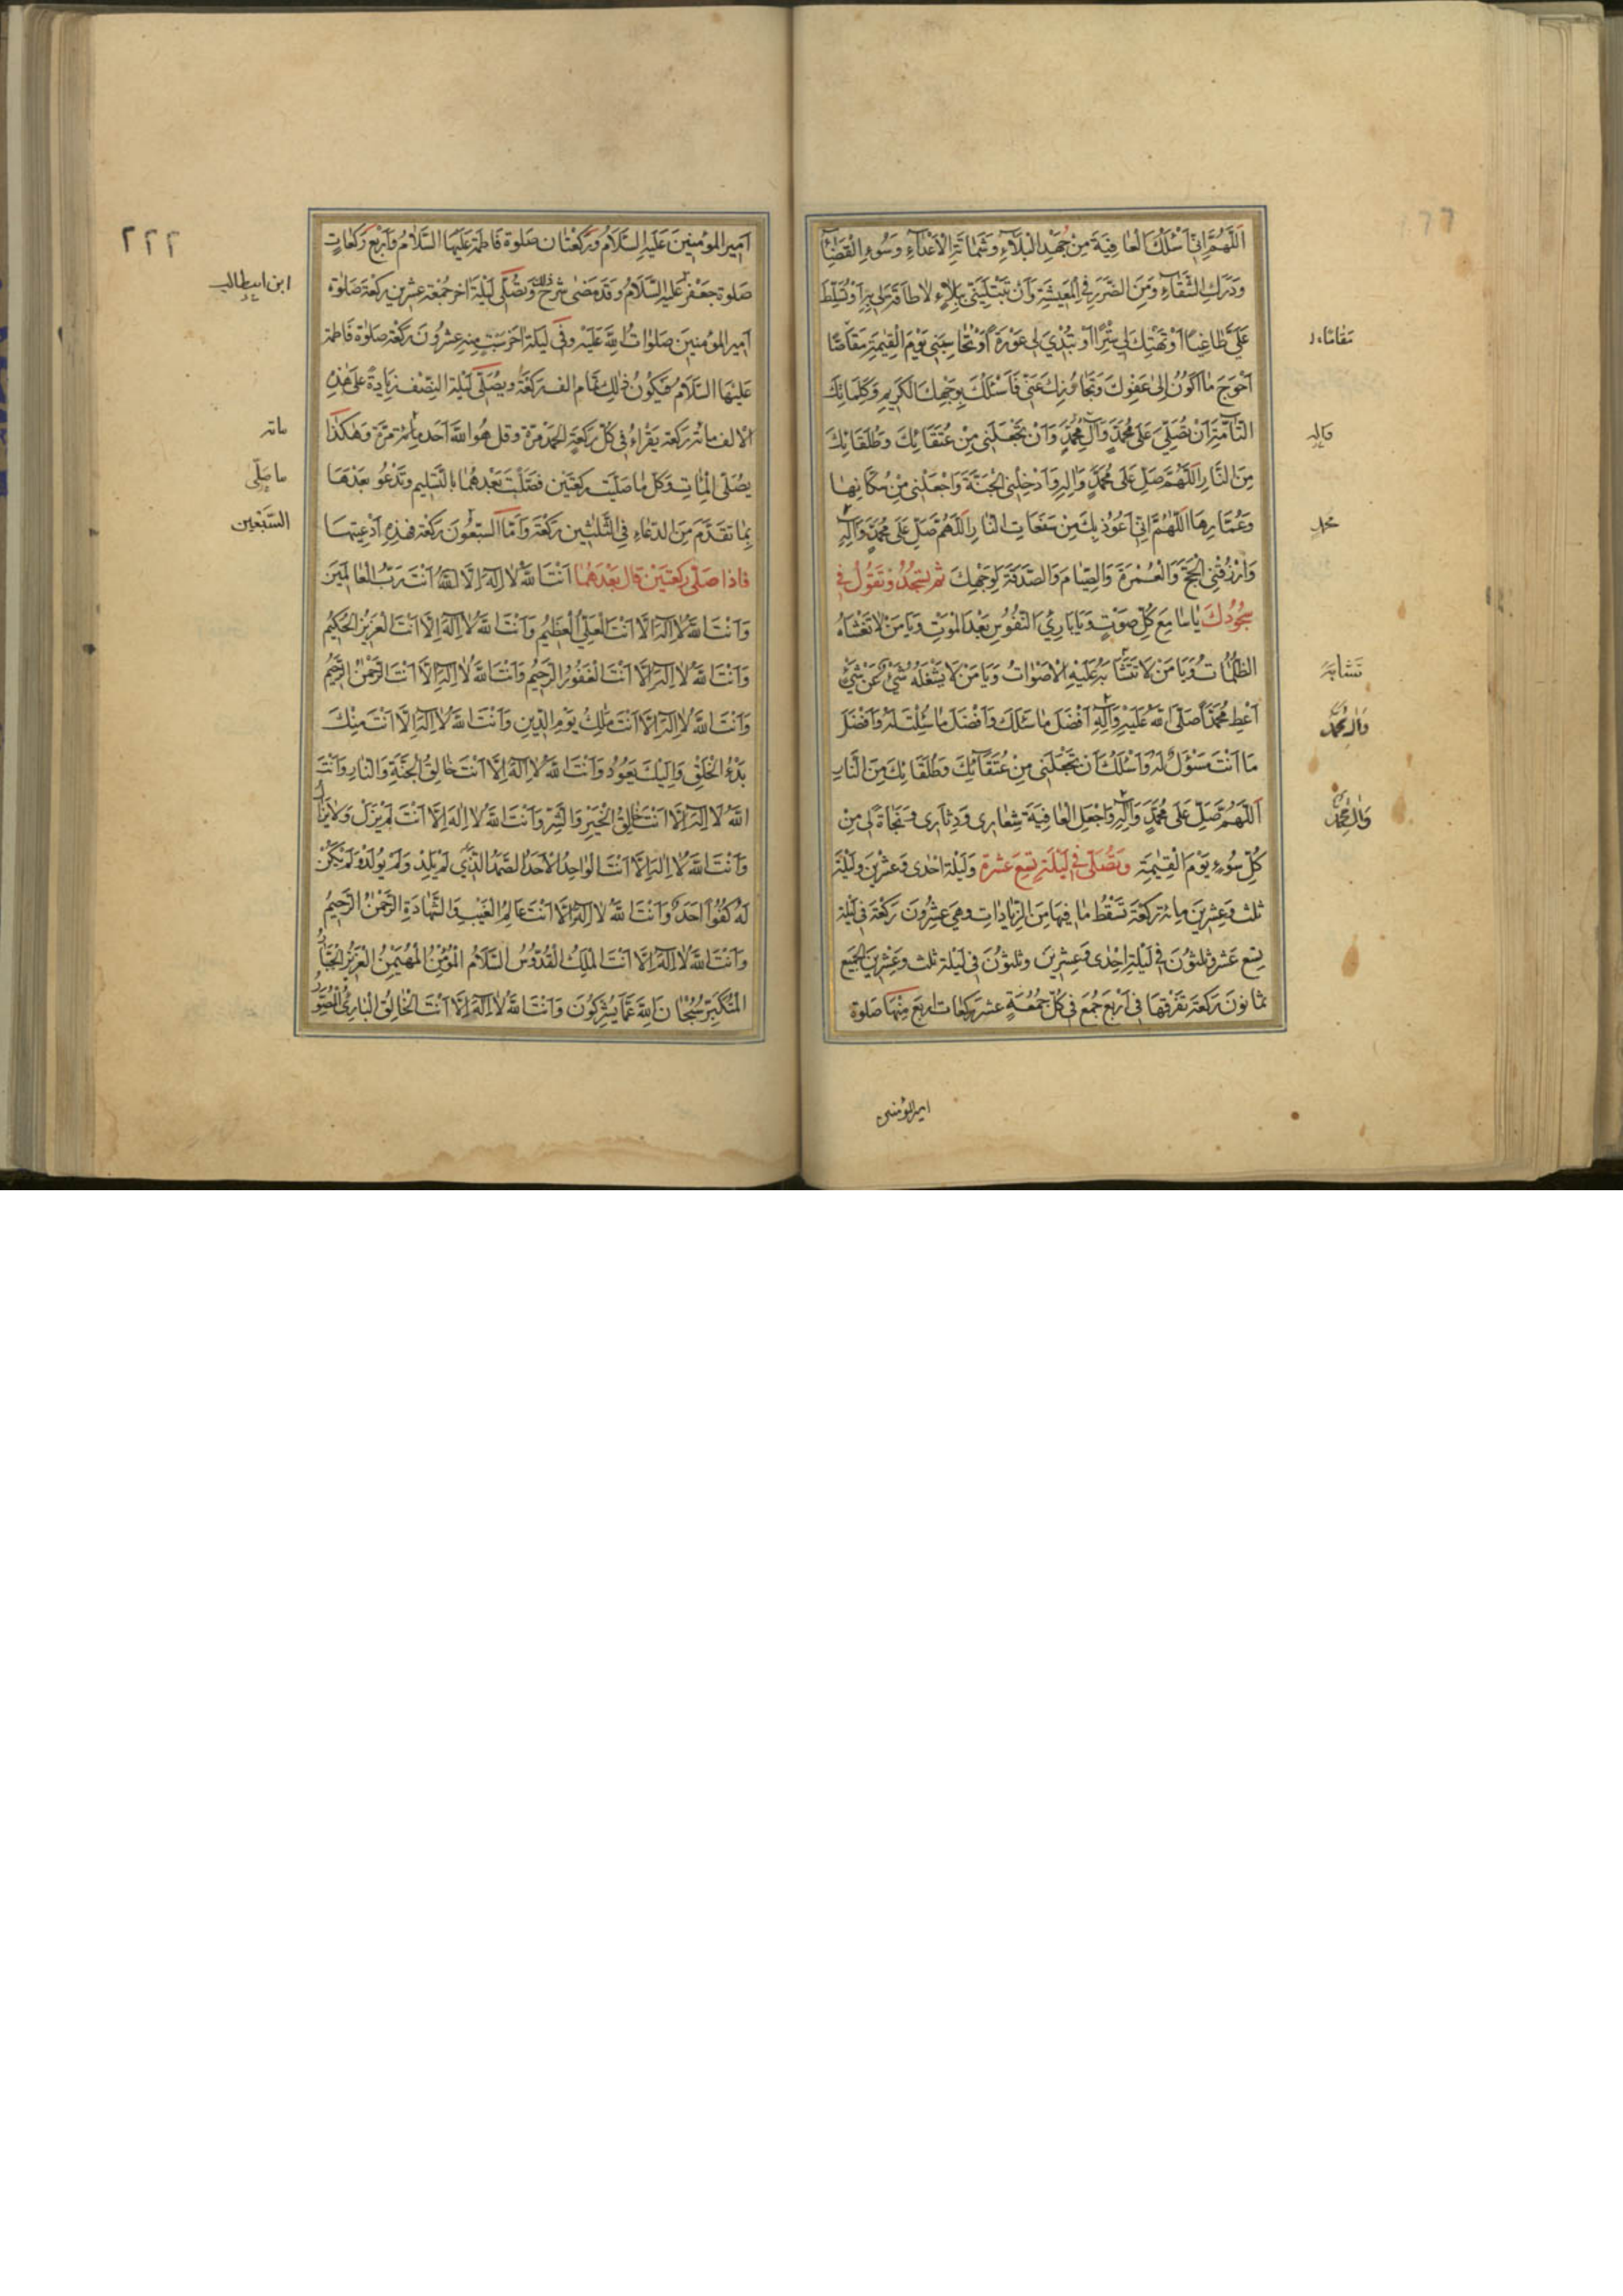 اَللّٰهُمَّ اِنّى اَسْئَلُكَ الْعٰافِيَةَ مِنْ جُهْدِ الْبَلآءِ وَشَمٰاتَةِ الْاَعْدٰآءِ وَسُوءِ الْقَضٰآءِ
وَدَرَكِ الشَّقٰآءِ وَمِنَ الضَّرَرِ فِى الْمَعيشَةِ وَاَنْ تَبْتَلِيَنى بِبَلاٰءٍ لاٰ طٰاقَةَ لى بِهِ اَوْ تُسَلِّطَ
عَلَىَّ طٰاغِيًا اَوْ تَهْتِكَ لى سِتْرًا اَوْ تُبْدِىَ لى عَوْرَةً اَوْ تُحٰاسِبَنى يَوْمَ الْقِيٰمَةِ مَقٰاصًّا
اَحْوَجَ مٰا اَكُونُ اِلىٰ عَفْوِكَ وَتَجٰاوُزِكَ عَنّى فَاَسْئَلُكَ بِوَجْهِكَ الْكَريمِ وَكَلِمٰاتِكَ
التّٰآمَّةِ اَنْ تُصَلِّىَ عَلىٰ مُحَمَّدٍ وَآلِ مُحَمَّدٍ وَاَنْ تَجْعَلَنى مِنْ عُتَقٰائِكَ وَطُلَقٰائِكَ
مِنَ النّٰارِ اَللّٰهُمَّ صَلِّ عَلىٰ مُحَمَّدٍ وَاٰلِهِ وَاَدْخِلْنى الْجَنَّةَ وَاجْعَلْنى مِنْ سُكّٰانِهٰا
وَعُمّٰارِهٰا اَللّٰهُمَّ اِنّى اَعُوذُ بِكَ مِنْ سَفَعٰاتِ النّٰارِ اَللّٰهُمَّ صَلِّ عَلىٰ مُحَمَّدٍ وَاٰلِهِ
وَارْزُقْنِى الْحَجَّ وَالْعُمْرَةَ وَالصِّيٰامَ وَالصَّدَقَةَ لِوَجْهِكَ ثم تسجُدُ وَتَقُولُ فى
سُجُودِكَ يٰا سٰامِعَ كُلِّ صَوْتٍ وَيٰا بٰارِئَ النُّفُوسِ بَعْدَ الْمَوْتِ وَيٰا مَنْ لاٰ تَغْشٰاهُ
الظُّلُمٰاتُ وَيٰا مَنْ لاٰ تَتَشٰابَهُ عَلَيْهِ الْاَصْوٰاتُ وَيٰا مَنْ لاٰ يَشْغَلُهُ شَىْءٌ عَنْ شَىْءٍ
اَعْطِ مُحَمَّدًا صَلَّى اللّٰهُ عَلَيْهِ وَاٰلِهِ اَفْضَلَ مٰا سَئَلَكَ وَاَفْضَلَ مٰا سُئِلْتَ لَهُ وَاَفْضَلَ
مٰا اَنْتَ مَسْؤُلٌ لَهُ وَاَسْئَلُكَ اَنْ تَجْعَلَنى مِنْ عُتَقٰآئِكَ وَطُلَقٰائِكَ مِنَ النّٰارِ
اَللّٰهُمَّ صَلِّ عَلىٰ مُحَمَّدٍ وَاٰلِهِ وَاجْعَلِ الْعٰافِيَةَ شِعٰارى وَدِثٰارى وَنَجٰاةً لى مِنْ
كُلِّ سُوءٍ يَوْمَ الْقِيٰمَةِ وَتُصَلّى فى لَيْلَةِ تِسْعَ عَشْرَةَ وَلَيْلَةِ اِحْدى وَعِشْرينَ وَلَيْلَةِ
ثلث وَعِشْرينَ مِائة رَكْعَةٍ تَسْقُطُ مٰا فيهٰا مِنَ الزِّيٰادٰاتِ وَهِىَ عِشْرُونَ رَكْعَةً فى لَيْلَةِ
تِسْع عَشْرة وَثلثُونَ فى لَيْلَةِ اِحْدٰى وَعِشْرينَ وثلثُونَ فى لَيْلَة ثلث وعِشْرينَ الْجَمِيع
ثمانُونَ رَكْعَة تفَرّقهٰا فى اَرْبَعِ جُمَع فى كُلِّ جُمُعَةٍ عشر ركعٰات اربَع مِنْهٰا صَلوة
مقاصّاء ل
وَاله
مُحمد
تَشَابَه
وَآل مُحَمَّد
وَآل مُحَمَّد
امير المؤمنين
٢٢٢
اَمِيرِ الْمؤُمِنينَ عَلَيْهِ السَّلاٰمُ وَرَكْعَتٰان صَلٰوة فَاطِمَة عَلَيْهَا السَّلاٰمُ وَاَرْبَع رَكَعٰاتٍ
صَلوة جَعْفَر عَلَيْهِ السَّلاٰمُ وَقَدْ مَضىٰ شَرْحُ ذلك وَتُصَلّى لَيْلَةَ اٰخِر جُمْعَة عِشْرينَ رَكْعَةً صَلوٰة
اَمِيرِ الْمُؤمِنينَ صَلَوٰاتُ اللّٰهِ عَلَيْهِ وَفى لَيْلَة اٰخر سَبْتٍ مِنه عِشْرُونَ رَكْعَة صَلوٰة فَاطمة
عَلَيْهَا السَّلاٰمُ فَيَكُونُ ذٰلِكَ تَمٰام الف رَكْعَة وَيُصَلّى لَيْلَة النِّصْف زِيٰادَةً عَلىٰ هٰذِهِ
الالف مائة رَكعة يَقْرَاءُ فى كُلّ رَكْعَةٍ الْحَمْدَ مَرّة وقل هُوَ اللّٰهُ اَحَد مِأئة مَرَّة وَهٰكَذٰا
يُصَلّى الْمِأٰت وَكُلّ مٰا صَلّيت رَكعَتَيْن فصَلْت بَعْدهُمٰا بِالتَّسْلِيم وَتَدْعُو بَعْدَهَا
بِمٰا تَقَدَّمَ مِنَ الدّعَاءِ فِى الثَّلثين رَكْعَة وَاَمَّا السّبْعُونَ رَكْعَة فهٰذِهِ اَدْعِيَتهٰا
فاذا صَلّى رَكعَتَيْن قالَ بَعْدَهُمٰا اَنْتَ اللّٰهُ لاٰ اِلٰهَ اِلاَّ اللّٰهُ اَنْتَ رَبُّ الْعٰالَمينَ
وَاَنْتَ اللّٰهُ لاٰ اِلٰهَ اِلاَّ اَنْتَ الْعَلِىُّ الْعَظيمُ وَاَنْتَ اللّٰهُ لاٰ اِلٰهَ اِلاَّ اَنْتَ الْعَزيزُ الْحَكيمُ
وَاَنْتَ اللّٰهُ لاٰ اِلٰهَ اِلاَّ اَنْتَ الْغَفُورُ الرَّحيمُ وَاَنْتَ اللّٰهُ لاٰ اِلٰهَ اِلاَّ اَنْتَ الرَّحْمٰنُ الرَّحيمُ
وَاَنْتَ اللّٰهُ لاٰ اِلٰهَ اِلاَّ اَنْتَ مٰلِكُ يَوْمِ الدّينِ وَاَنْتَ اللّٰهُ لاٰ اِلٰهَ اِلاَّ اَنْتَ مِنْكَ
بَدْءُ الْخَلْقِ وَاِلَيْكَ يَعُودُ وَاَنْتَ اللّٰهُ لاٰ اِلٰهَ اِلاَّ اَنْتَ خٰالِقُ الْجَنَّةِ وَالنّٰارِ وَاَنْتَ
اللّٰهُ لاٰ اِلٰهَ اِلاَّ اَنْتَ خٰالِقُ الْخَيْرِ وَالشَّرِّ وَاَنْتَ اللّٰهُ لاٰ اِلٰهَ اِلاَّ اَنْتَ لَمْ يَزَلْ وَلاٰ يَزٰالُ
وَاَنْتَ اللّٰهُ لاٰ اِلٰهَ اِلاَّ اَنْتَ الْوٰاحِدُ الْاَحَدُ الصَّمَدُ الَّذى لَمْ يَلِدْ وَلَمْ يُولَدْ وَلَمْ يَكُنْ
لَهُ كُفُوًا اَحَدٌ وَاَنْتَ اللّٰهُ لاٰ اِلٰهَ اِلاَّ اَنْتَ عٰالِمُ الْغَيْبِ وَالشَّهٰادَةِ الرَّحْمٰنُ الرَّحيمُ
وَاَنْتَ اللّٰهُ لاٰ اِلٰهَ اِلاَّ اَنْتَ الْمَلِكُ الْقُدُّوسُ السَّلاٰمُ الْمُؤْمِنُ الْمُهَيْمِنُ الْعَزيزُ الْجَبّٰارُ
الْمُتَكَبِّرُ سُبْحٰانَ اللّٰهِ عَمّٰا يُشْرِكُونَ وَاَنْتَ اللّٰهُ لاٰ اِلٰهَ اِلاَّ اَنْتَ الْخٰالِقُ الْبٰارِئُ الْمُصَوِّرُ
ابن ابيطالب
مائة
ما صلّى
السَّبْعين